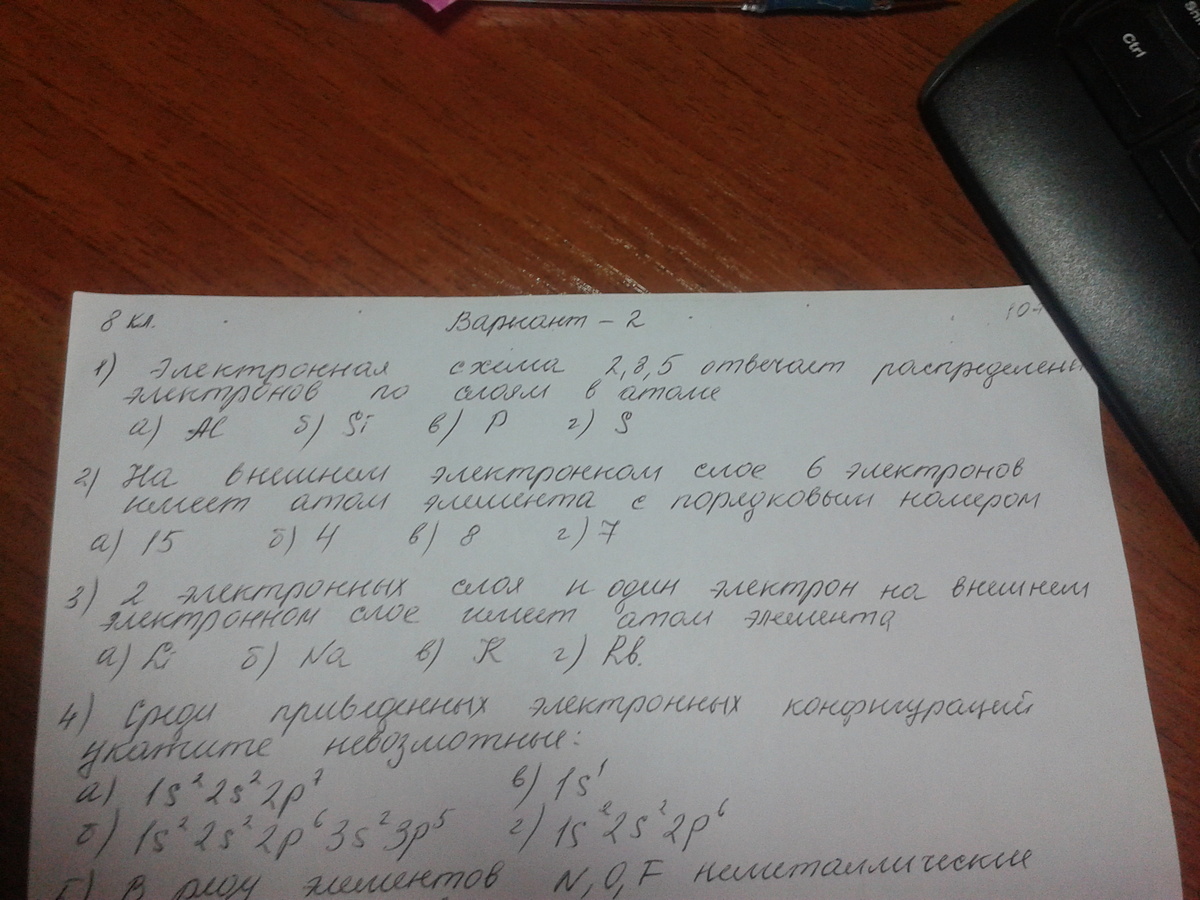 Ctrl
8 кл. Вариант – 2
1) Электронная схема 2,8,5 отвечает
электронов по слоям в атоме
а) Al б) Si в) P г) S
2) На внешнем электронном слое 6 электронов
имеет атом элемента с порядковым номером
а) 15 б) 4 в) 8 г) 7
3) 2 электронных слоя и один электрон на внешнем
электронном слое имеет атом элемента
а) Li б) Na в) K г) Rb.
4) Среди приведенных электронных конфигураций
укажите невозможные:
а) 1s² 2s² 2p⁷ в) 1s¹
б) 1s² 2s² 2p⁶ 3s² 3p⁵ г) 1s² 2s² 2p⁶
5) В ряду элементов N, O, F неметаллические